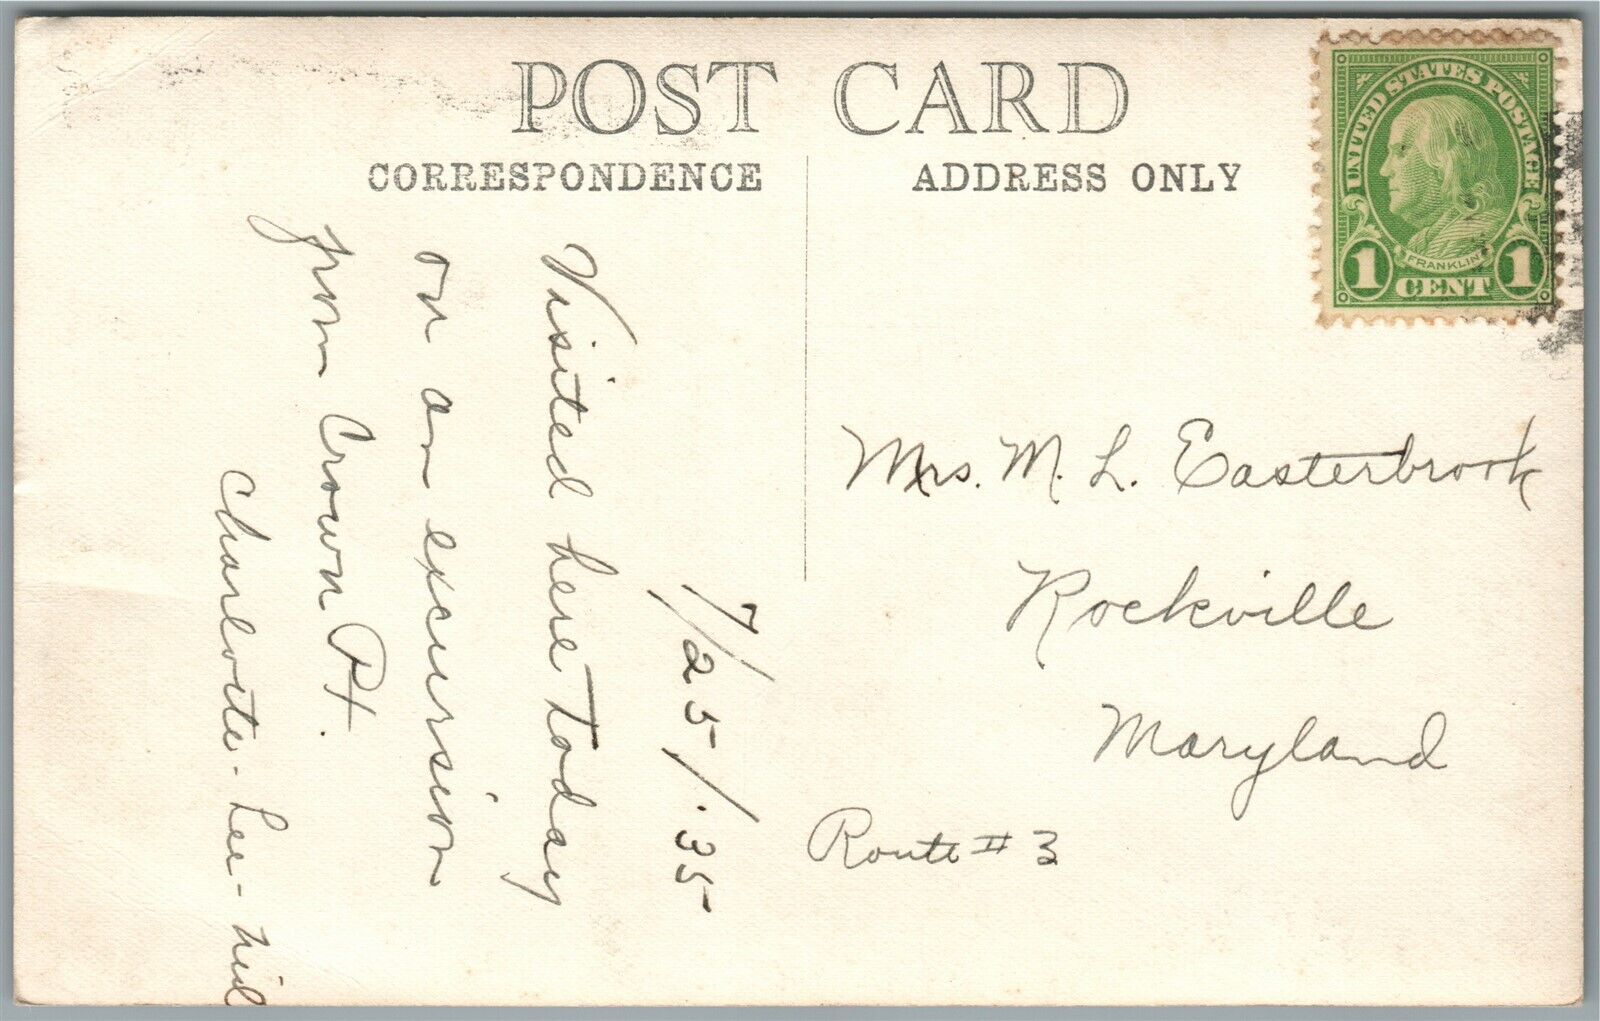 POST CARD
CORRESPONDENCE
ADDRESS ONLY
UNITED STATES POSTAGE
FRANKLIN
1 CENT 1
7/25/.35
Visited here today
on an excursion
from Crown Pt.
Charlotte - Lee -
Mrs. M. L. Easterbrook
Rockville
Maryland
Route # 3